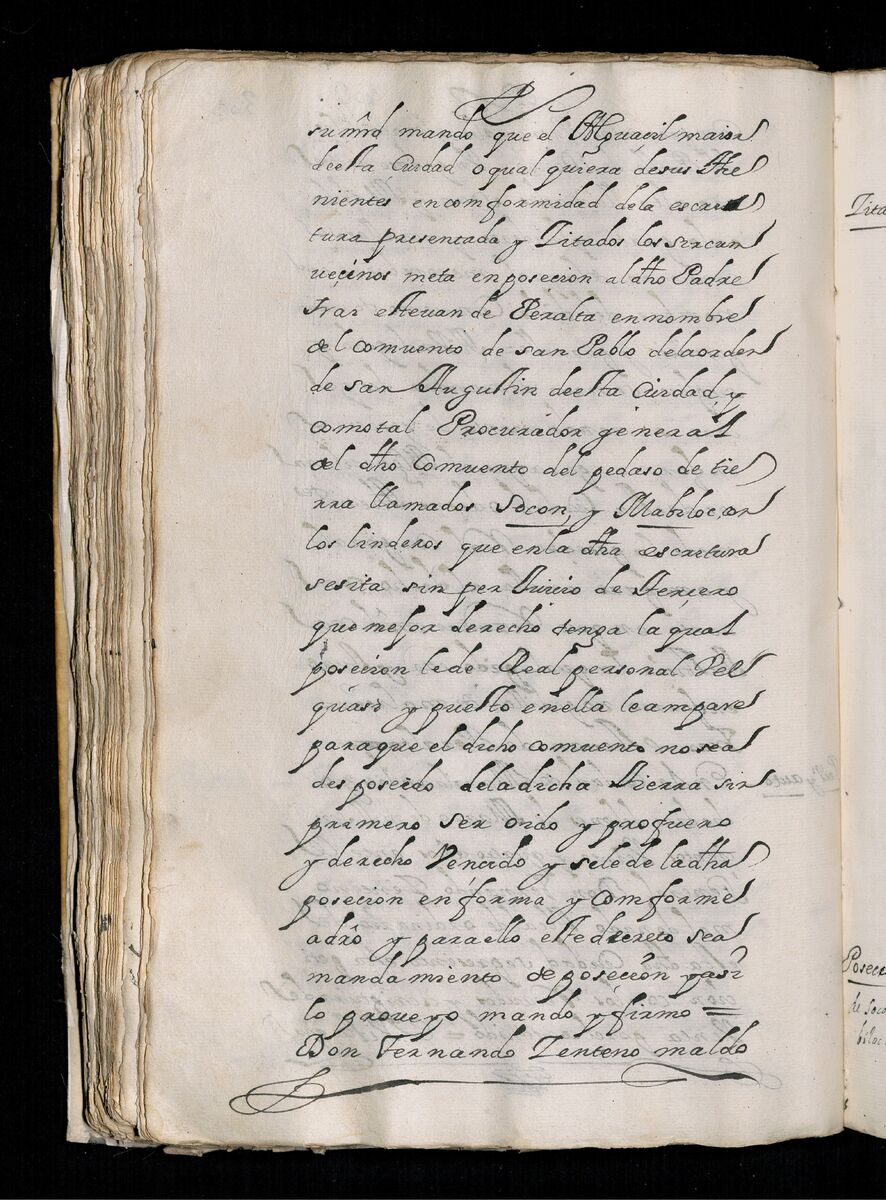 su mrd mando que el Alguacil maior
de esta Ciudad o qual quiera de sus the
nientes en comformidad dela escrip
tura presentada y Zitados los sircun
veçinos meta en posecion al dho Padre
frai estevan de Peralta en nombre
del comvento de san Pablo dela orden
de san Augustin de esta Ciudad y
como tal Procurador general
del dho Comvento del pedaso de tie
rra llamados Socon, y Mabiloc, con
los linderos que en la dha escretura
sesita sin per Juicio de tercero
que mejor derecho tenga la qual
posecion le de Real personal Vel
quasi y puesto en ella le ampare
para que el dicho comvento no sea
des poseido dela dicha tierra sin
primero ser oido y por fuero
y derecho Vencido y se le de la dha
posecion en forma y comforme
adro y para ello este decreto sea
mandamiento de posecion y asi
lo proveyo mando y firmo =
Don Fernando Zenteno maldo
Zita
Poseci
de Soco
biloc